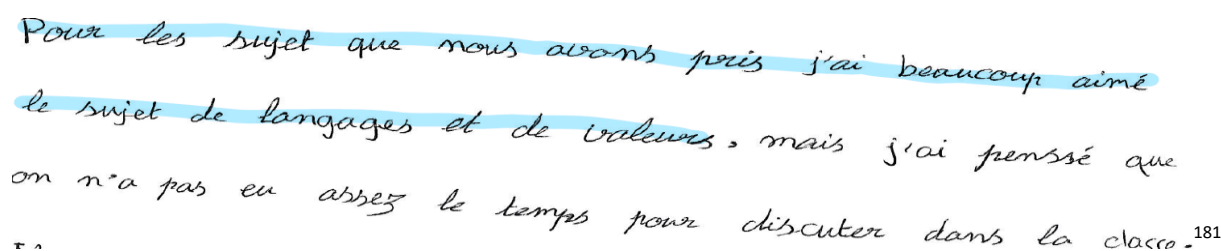 Pour les sujet que nous avons pris j'ai beaucoup aimé
le sujet de langages et de valeurs, mais j'ai penssé que
on n'a pas eu assez le temps pour discuter dans la classe. 181